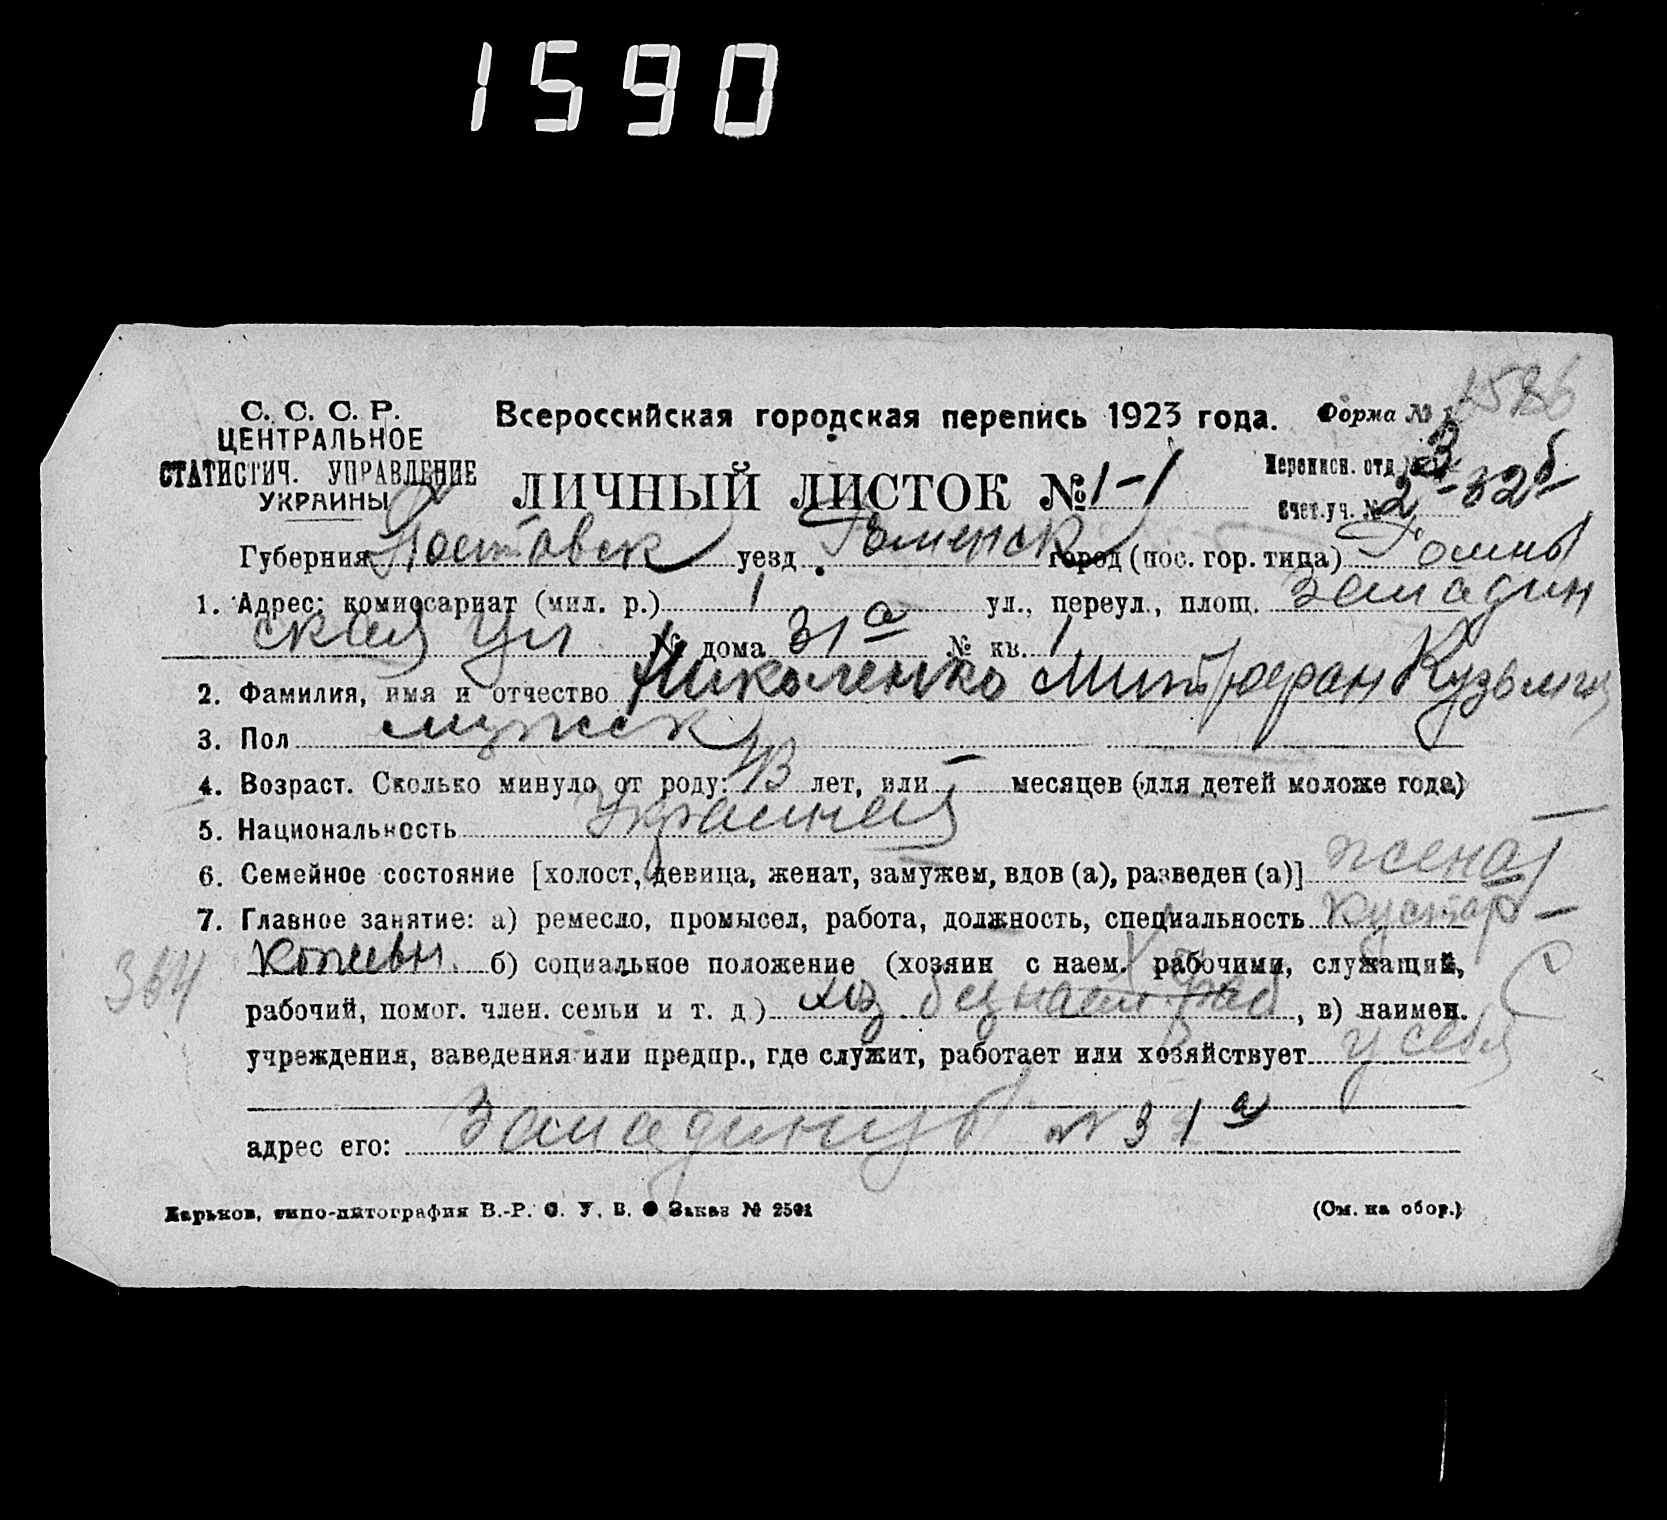 1590
С. С. С. Р.
ЦЕНТРАЛЬНОЕ
СТАТИСТИЧ. УПРАВЛЕНИЕ
УКРАИНЫ
Всероссийская городская перепись 1923 года.
Форма № 1586
ЛИЧНЫЙ ЛИСТОК № 1-1
Переписн. отд. 3
Счет.уч. № 2-32б
Губерния Полтавск уезд Роменск город (пос. гор. типа) Ромны
1. Адрес: комиссариат (мил. р.) 1 ул., переул., площ. Западин
ская ул № дома 31а № кв. 1
2. Фамилия, имя и отчество Николенко Митрофан Кузьмич
3. Пол мужск
4. Возраст. Сколько минуло от роду: 43 лет, или — месяцев (для детей моложе года)
5. Национальность
6. Семейное состояние [холост, девица, женат, замужем, вдов (а), разведен (а)] женат
7. Главное занятие: а) ремесло, промысел, работа, должность, специальность кустарь
364 кожевн. б) социальное положение (хозяин с наем. рабочими, служащий,
рабочий, помог. член. семьи и т. д) хоз. без наем. раб, в) наимен.
учреждения, заведения или предпр., где служит, работает или хозяйствует у себя
адрес его: № 31а
Харьков, типо-литография В.-Р. С. У. В. Заказ № 2501
(См. на обор.)